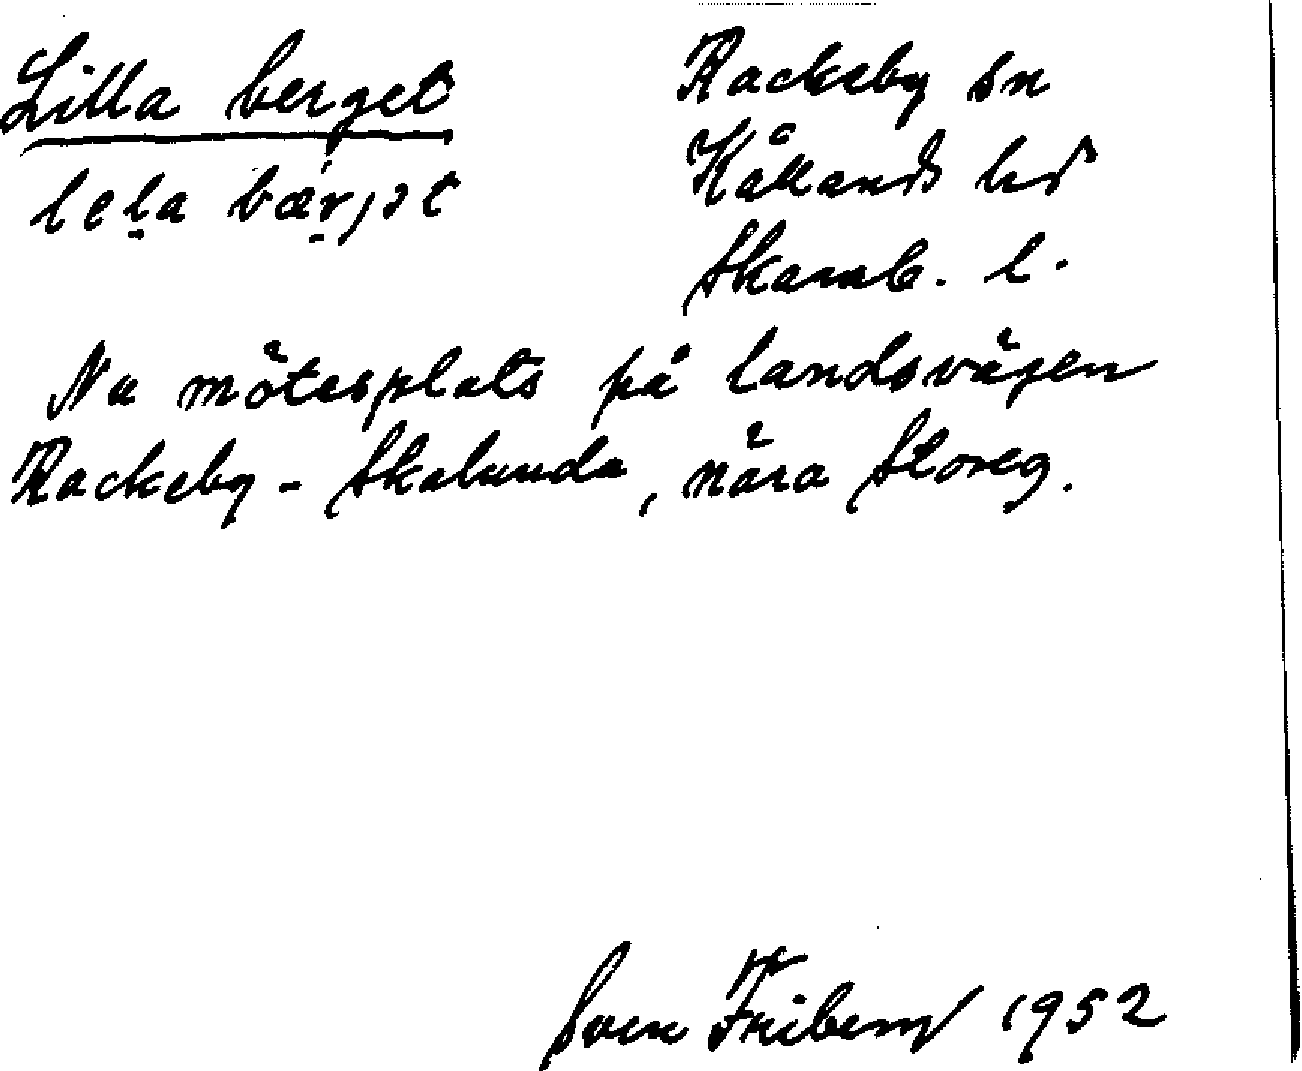 Lilla berget
Rackeby sn
lela bærjət
Kållands hd
Skarab. l.
Nu mötesplats på landsvägen
Rackeby - Skalunda, nära Storeg.
Sven Friberg 1952